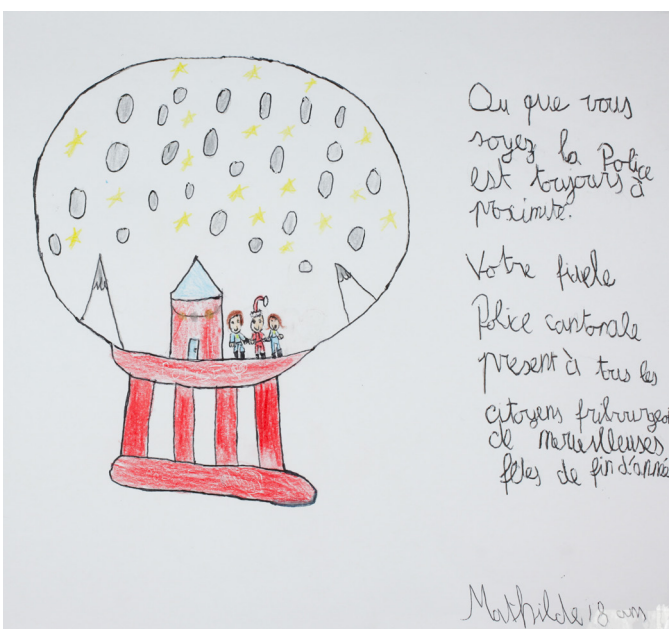 Ou que vous
soyez la Police
est toujours à
proximité.
Votre fidele
Police cantonale
present à tous les
citoyens fribourgeois
de merveilleuses
fêtes de fin d'année
Mathilde 8 ans